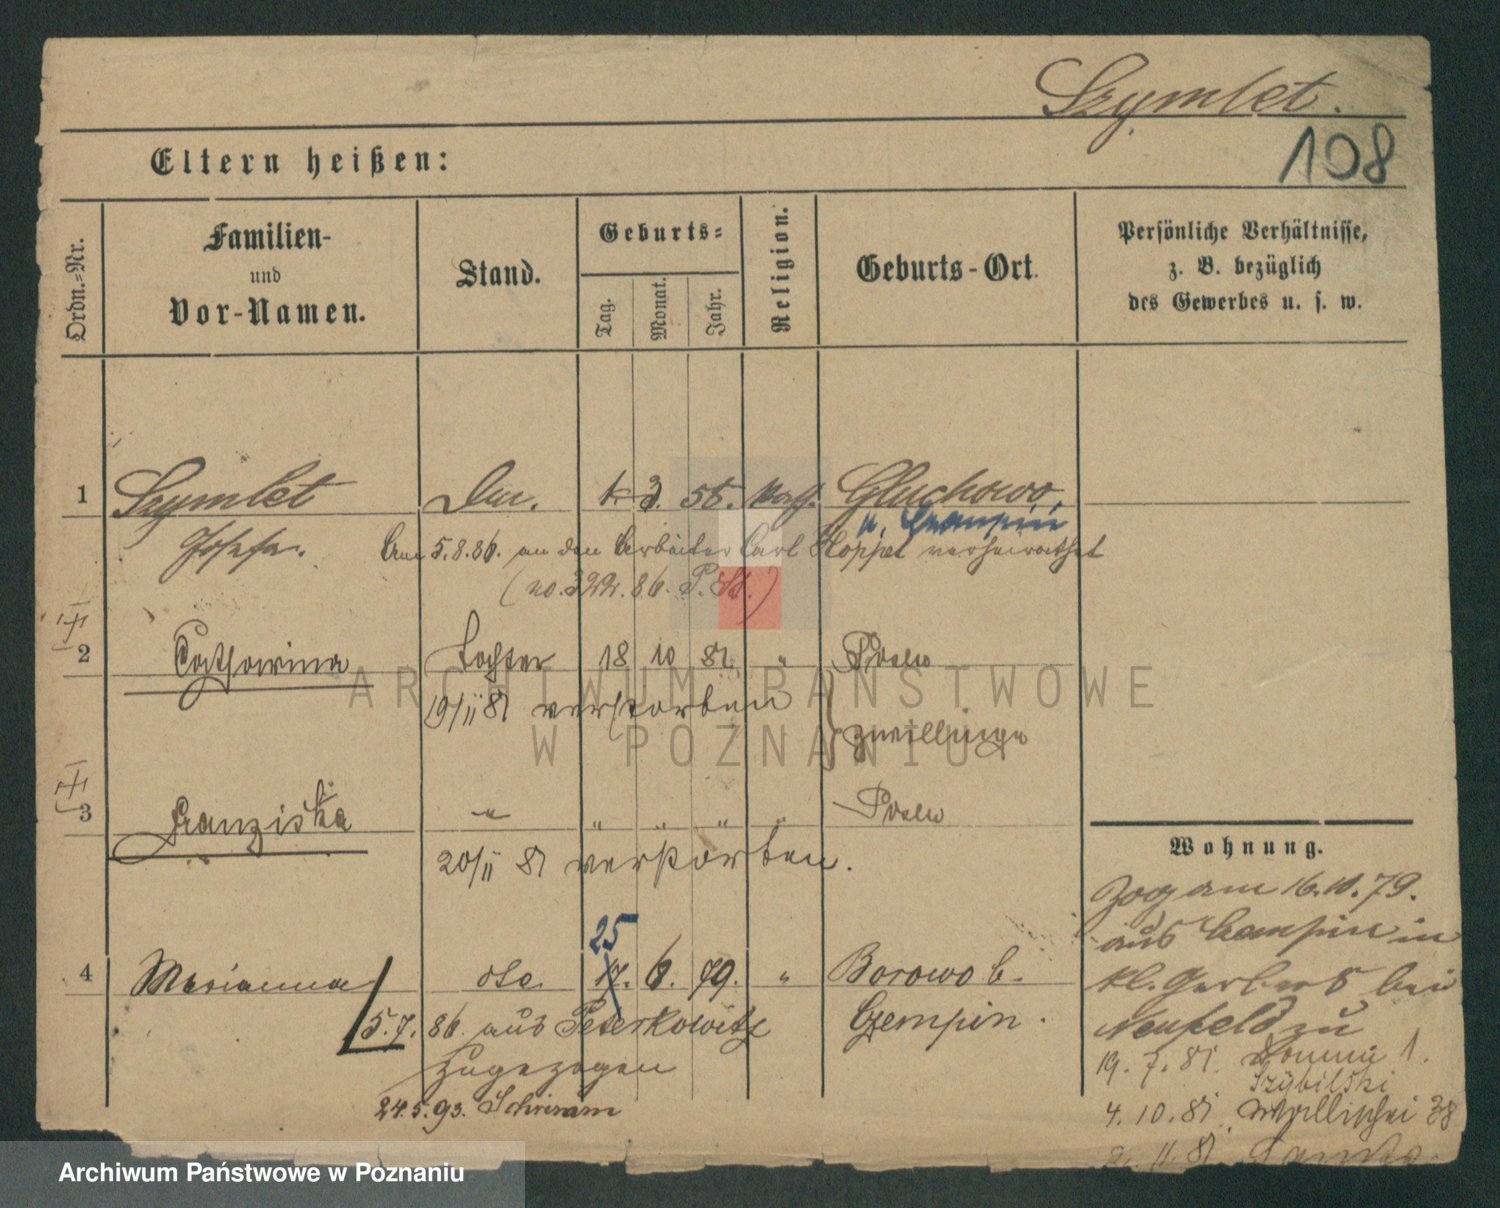 Szymlet.
108
Eltern heißen:
Ordn.-Nr.
Familien-
und
Vor-Namen.
Stand.
Geburts-
Tag.
Monat.
Jahr.
Religion.
Geburts-Ort.
Persönliche Verhältnisse,
z. B. bezüglich
des Gewerbes u. s. w.
1 Szymlet 3. 55. Gluchowo,
Josefa.
Am 5.8.86. an den Arbeiter Carl Hoppel verheirathet
(no. 322. 86. P. St.)
2 Catharina Tochter 18 10 81 " Posen
19/11 81 verstorben
Zwillinge
3 Franziska " " " " " Posen
20/11 81 verstorben.
25
4 Marianna dto. 17. 6. 79. " Borowo b.
Czempin.
5.7. 86. aus Peterkowitz
zugezogen
24.5.93. Schrimm
Wohnung.
Zog am 16.10.79.
aus Czempin in
kl. Gerberstr bei
Neufeld zu
19. 7. 81. Dommin 1.
Szybilski
4. 10. 81. Wallischei 38
2. 11. 81.
ARCHIWUM PAŃSTWOWE
W POZNANIU
Archiwum Państwowe w Poznaniu